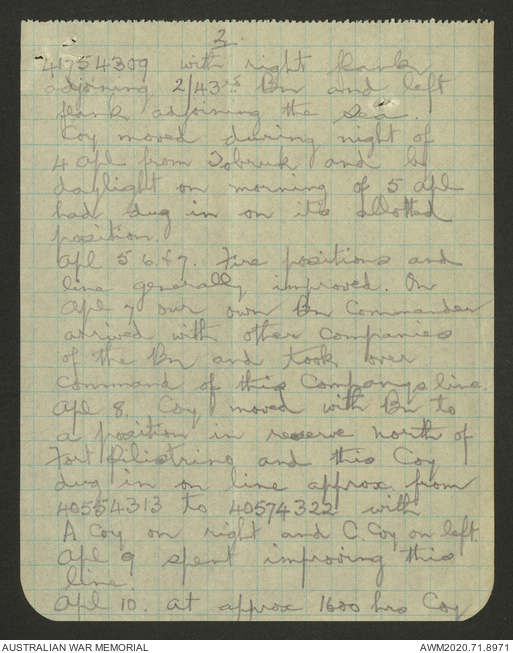 2.
41754309 with right flank
adjoining 2/43rd Bn and left
flank adjoining the sea.
Coy moved during night of
4 Apl from Tobruk and by
daylight on morning of 5 Apl
had dug in on its allotted
position.
Apl 5 6 & 7. Fire positions and
line generally improved. On
Apl 7 our own Bn Commander
arrived with other companies
of the Bn and took over
command of this Companys line.
Apl 8. Coy moved with Bn to
a position in reserve north of
Fort Pilistrino and this Coy
dug in on line approx from
40554313 to 40574322 with
A Coy on right and C. Coy on left.
Apl 9 spent improving this
line.
Apl 10. at approx 1600 hrs Coy
AUSTRALIAN WAR MEMORIAL
AWM2020.71.8971